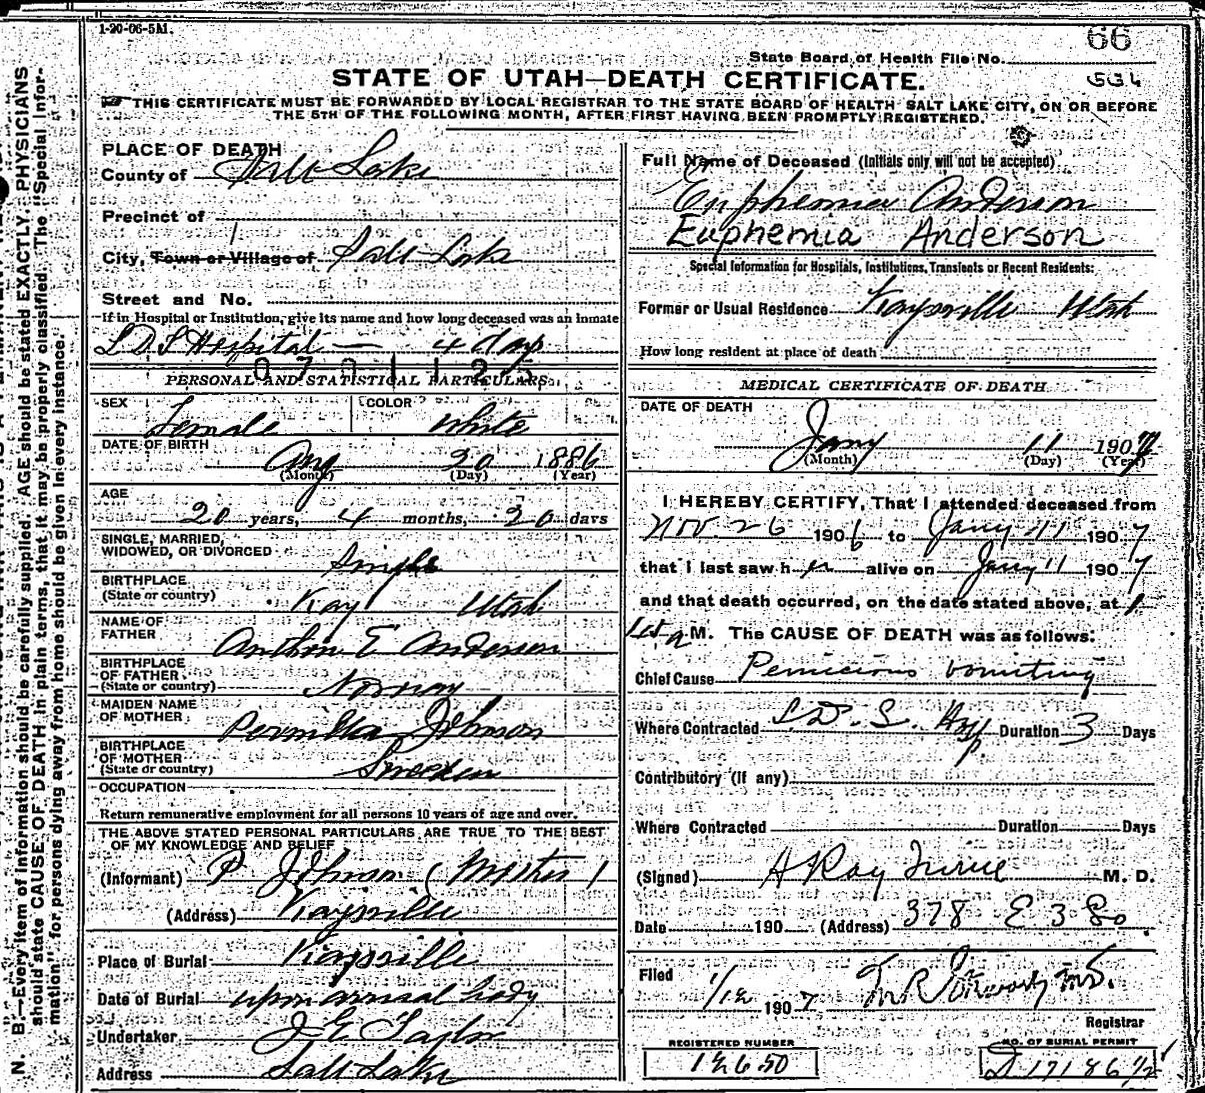 1-20-06-5M.
66
State Board of Health File No.
STATE OF UTAH—DEATH CERTIFICATE.
THIS CERTIFICATE MUST BE FORWARDED BY LOCAL REGISTRAR TO THE STATE BOARD OF HEALTH SALT LAKE CITY, ON OR BEFORE
THE 5TH OF THE FOLLOWING MONTH, AFTER FIRST HAVING BEEN PROMPTLY REGISTERED.
PLACE OF DEATH
County of Salt Lake
Precinct of
City, Town or Village of Salt Lake
Street and No.
If in Hospital or Institution, give its name and how long deceased was an inmate
L D S Hospital — 4 days
PERSONAL AND STATISTICAL PARTICULARS
SEX Female COLOR White
DATE OF BIRTH Aug 20 1886
(Month) (Day) (Year)
AGE
20 years, 4 months, 20 days
SINGLE, MARRIED,
WIDOWED, OR DIVORCED Single
BIRTHPLACE
(State or country) Kay Utah
NAME OF
FATHER Anthon E Anderson
BIRTHPLACE
OF FATHER
(State or country) Norway
MAIDEN NAME
OF MOTHER Pernilla Johnson
BIRTHPLACE
OF MOTHER
(State or country) Sweden
OCCUPATION
Return remunerative employment for all persons 10 years of age and over.
THE ABOVE STATED PERSONAL PARTICULARS ARE TRUE TO THE BEST
OF MY KNOWLEDGE AND BELIEF
(Informant) P Johnson (Mother)
(Address) Kaysville
Place of Burial Kaysville
Date of Burial upon arrival body
Undertaker J E Taylor
Address Salt Lake
Full Name of Deceased (Initials only will not be accepted)
Euphemia Anderson
Euphemia Anderson
Special Information for Hospitals, Institutions, Transients or Recent Residents:
Former or Usual Residence Kaysville Utah
How long resident at place of death
MEDICAL CERTIFICATE OF DEATH
DATE OF DEATH
Jany 11 1907
(Month) (Day) (Year)
I HEREBY CERTIFY, That I attended deceased from
Nov. 26 1906 to Jany 11 1907
that I last saw her alive on Jany 11 1907
and that death occurred, on the date stated above, at
M. The CAUSE OF DEATH was as follows:
Chief Cause Pernicious vomiting
Where Contracted L. D. S. Duration 3 Days
Contributory (if any)
Where Contracted Duration Days
(Signed) A Ray M. D.
Date 190 (Address) 378 E 3 So
Filed 1/12 1907
Registrar
REGISTERED NUMBER
NO. OF BURIAL PERMIT
D 17186 1/2
N. B.—Every item of information should be carefully supplied. AGE should be stated EXACTLY. PHYSICIANS
should state CAUSE OF DEATH in plain terms, that it may be properly classified. The "Special Infor-
mation" for persons dying away from home should be given in every instance.